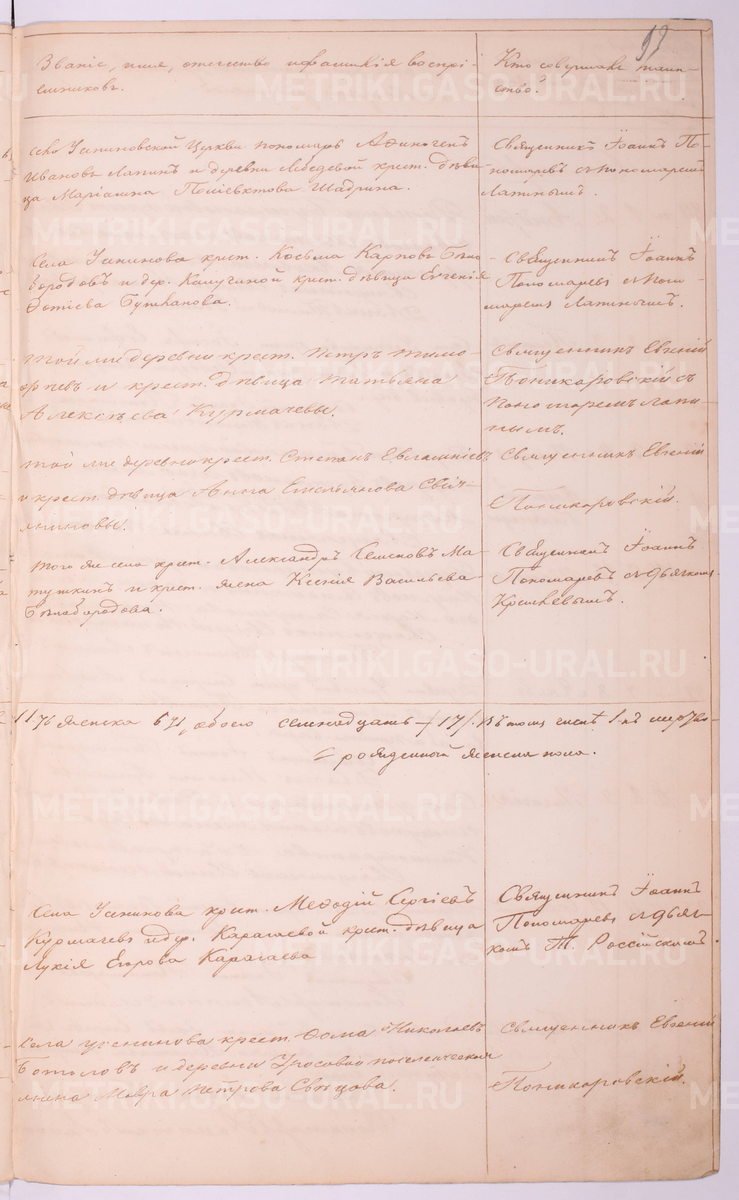 99
Званіе, имя, отечество и фамилія воспрі-
емниковъ.
Кто совершалъ таин-
ство?
сего Усениновской Церкви пономарь Афиногенъ
Ивановъ Лапинъ и деревни Лебедевой крест. дѣви-
ца Маріамна Поліевктова Шадрина.
Священникъ Іоаннъ По-
номаревъ съ пономаремъ
Лапинымъ.
Села Усенинова крест. Косьма Карповъ Бѣло-
бородовъ и дер. Калугиной крест. дѣвица Евгенія
Фотіева Бушланова.
Священникъ Іоаннъ
Пономаревъ съ Поно-
маремъ Лапинымъ.
той же деревни крест. Петръ Тимо-
феевъ и крест. дѣвица Татьяна
Алексѣева Курмачевы.
Священникъ Евгеній
Поникаровскій съ
Пономаремъ Лапи-
нымъ.
той же деревни крест. Степанъ Евлампіевъ
и крест. дѣвица Анна Емельянова
Священникъ Евгеній
Поникаровскій.
того же села крест. Александръ Семеновъ Ма-
тушкинъ и крест. жена Ксенія Васильева
Бѣлобородова.
Священникъ Іоаннъ
Пономаревъ съ дьячкомъ
женска 6, обоего семнадцать (17). Въ томъ числѣ 1-нъ мертво-
рожденный женска пола.
Села Усенинова крест. Меѳодій Сергіевъ
Курмачевъ и дер. Карагаевой крест. дѣвица
Лукія Егорова Карагаева
Священникъ Іоаннъ
Пономаревъ съ дьяч-
комъ Т. Россійскимъ
Села Усенинова крест. Фома Николаевъ
Ботоловъ и деревни Уросовой поселенческая
жена Мавра Петрова Свѣцова.
Священникъ Евгеній
Поникаровскій.
METRIKI.GASO-URAL.RU